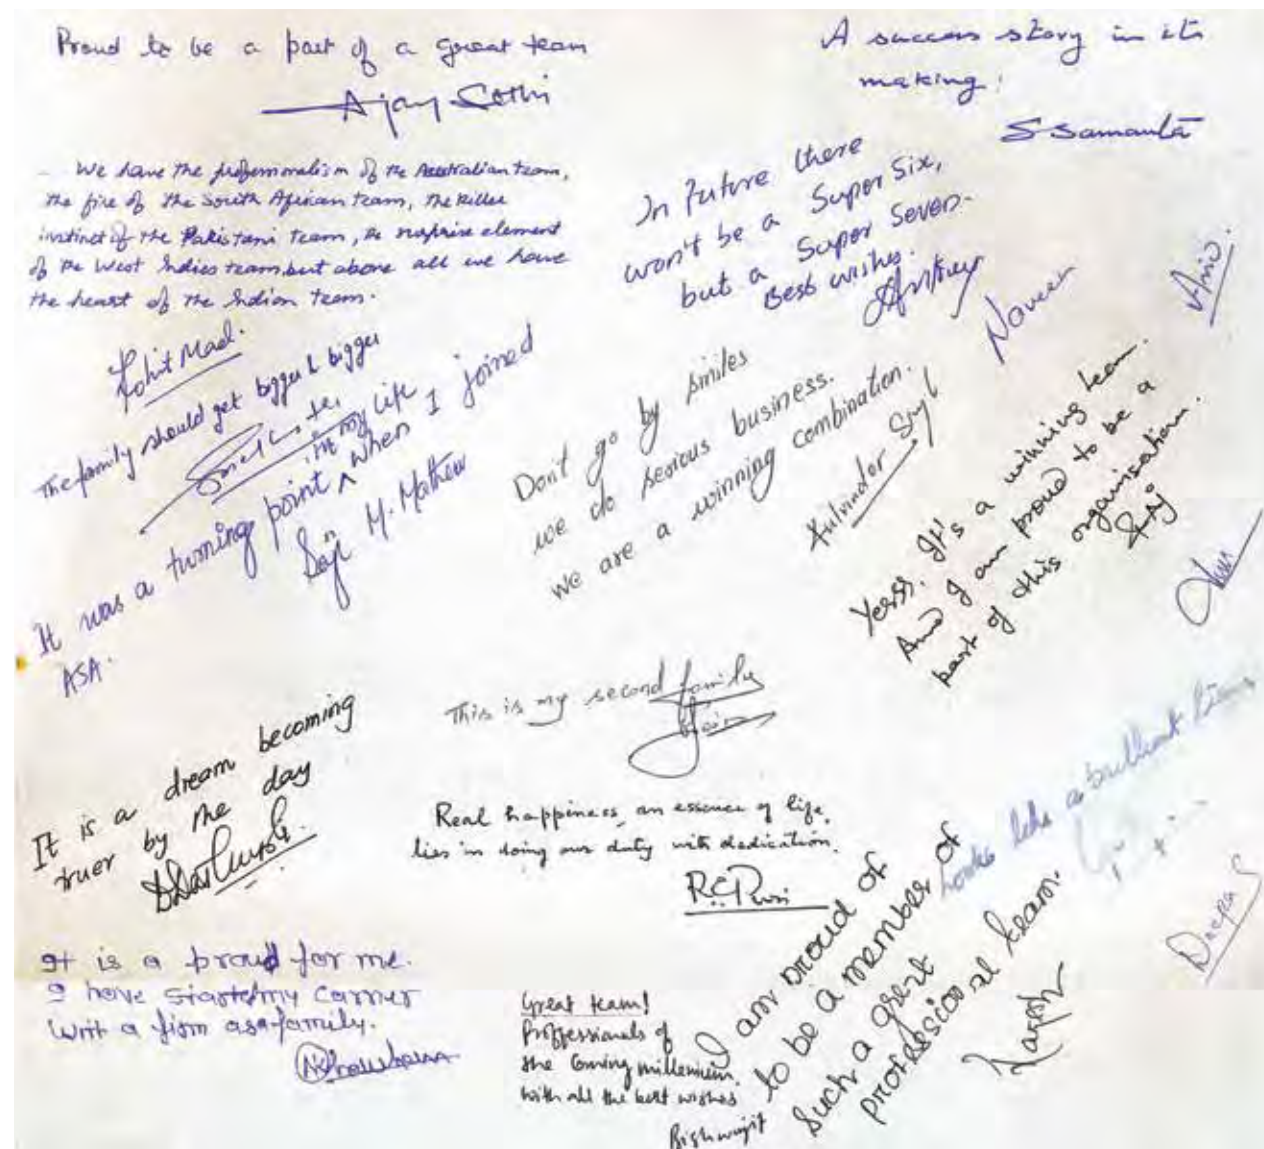 Proud to be a part of a great team
Ajay Sethi
A success story in its
making!
S Samanta
We have the professionalism of the Australian team,
the fire of the South African team, the killer
instinct of the Pakistani team, the surprise element
of the West Indies team, but above all we have
the heart of the Indian team.
Rohit Mael.
In Future there
won't be a Super Six,
but a Super Seven.
Best wishes.
Naveen
The family should get bigger & bigger
It was a turning point in my life when I joined
ASA.
Saji M. Mathew
Don't go by smiles
we do serious business.
we are a winning combination.
Kulvinder Singh
Yesss. It's a winning team.
And I am proud to be a
part of this organisation.
This is my second family
It is a dream becoming
truer by the day
Real happiness, an essence of life,
lies in doing our duty with dedication.
R.C. Puri
looks like a brilliant
Deepa
I am proud of
to be a member of
such a great
professional team.
It is a proud for me.
I have start my carrier
with a firm asa family.
Great team!
Proffessionals of
the coming millenium.
with all the best wishes
Bishwajit